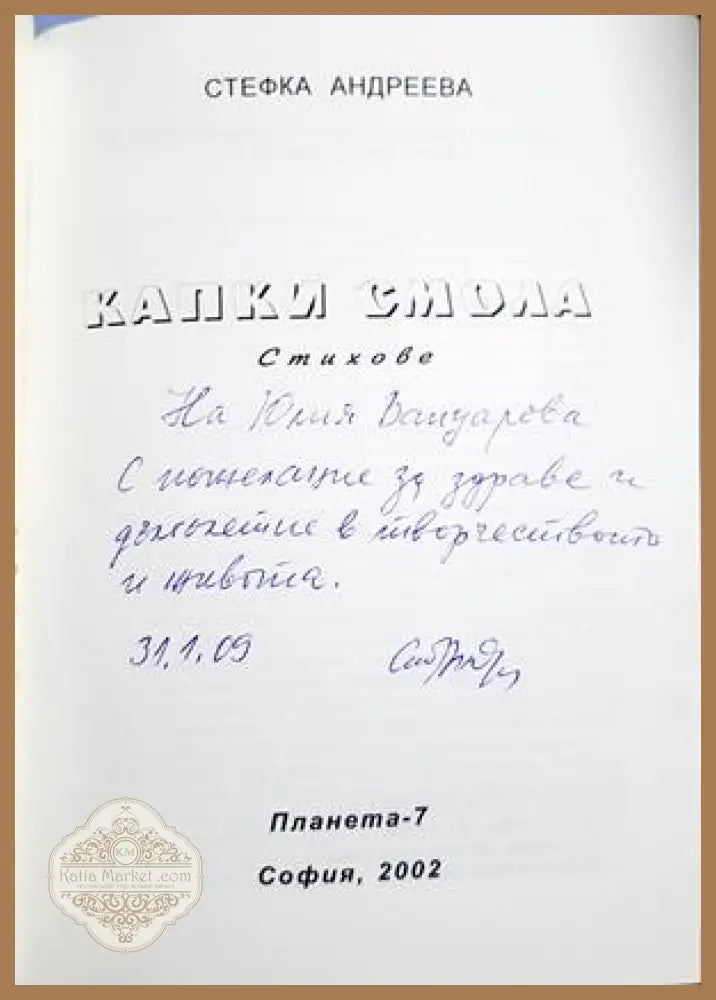 СТЕФКА АНДРЕЕВА
КАПКИ СМОЛА
Стихове
На Юлия
С пожелание за здраве и
дълголетие в творчеството
и живота.
31.1.09
Планета-7
София, 2002
KM
Katia Market .com